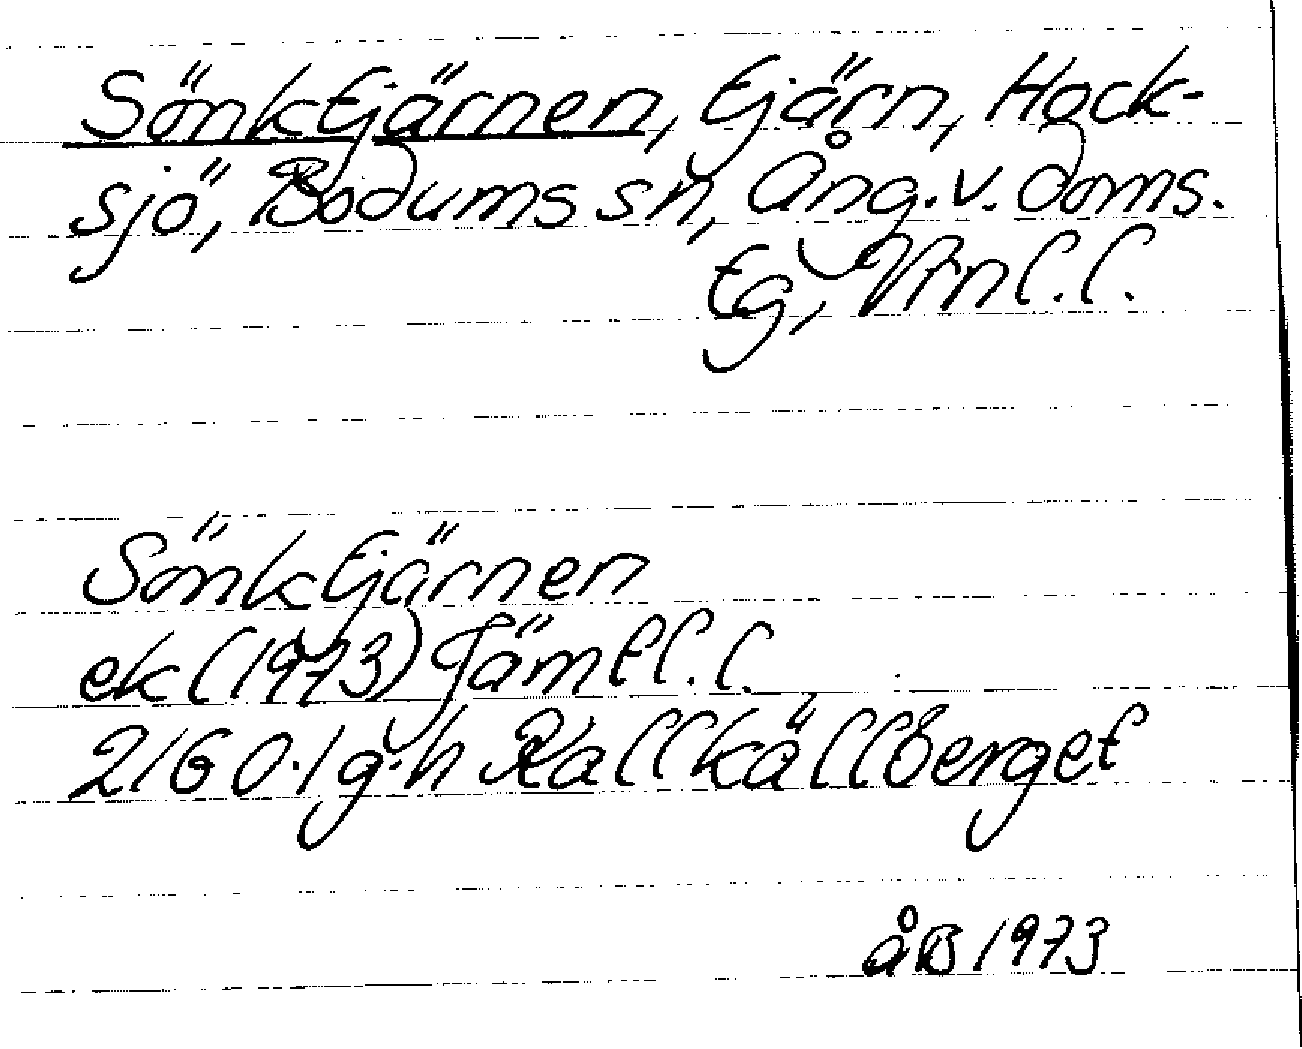 Sönktjärnen, tjärn, Hock-
sjö, Bodums sn, Ång. v. doms.
tg, Vrnl. l.
Sönktjärnen
ek (1973) Jämtl. l.
21G 0·1 g·h Kallkällberget
åB 1973